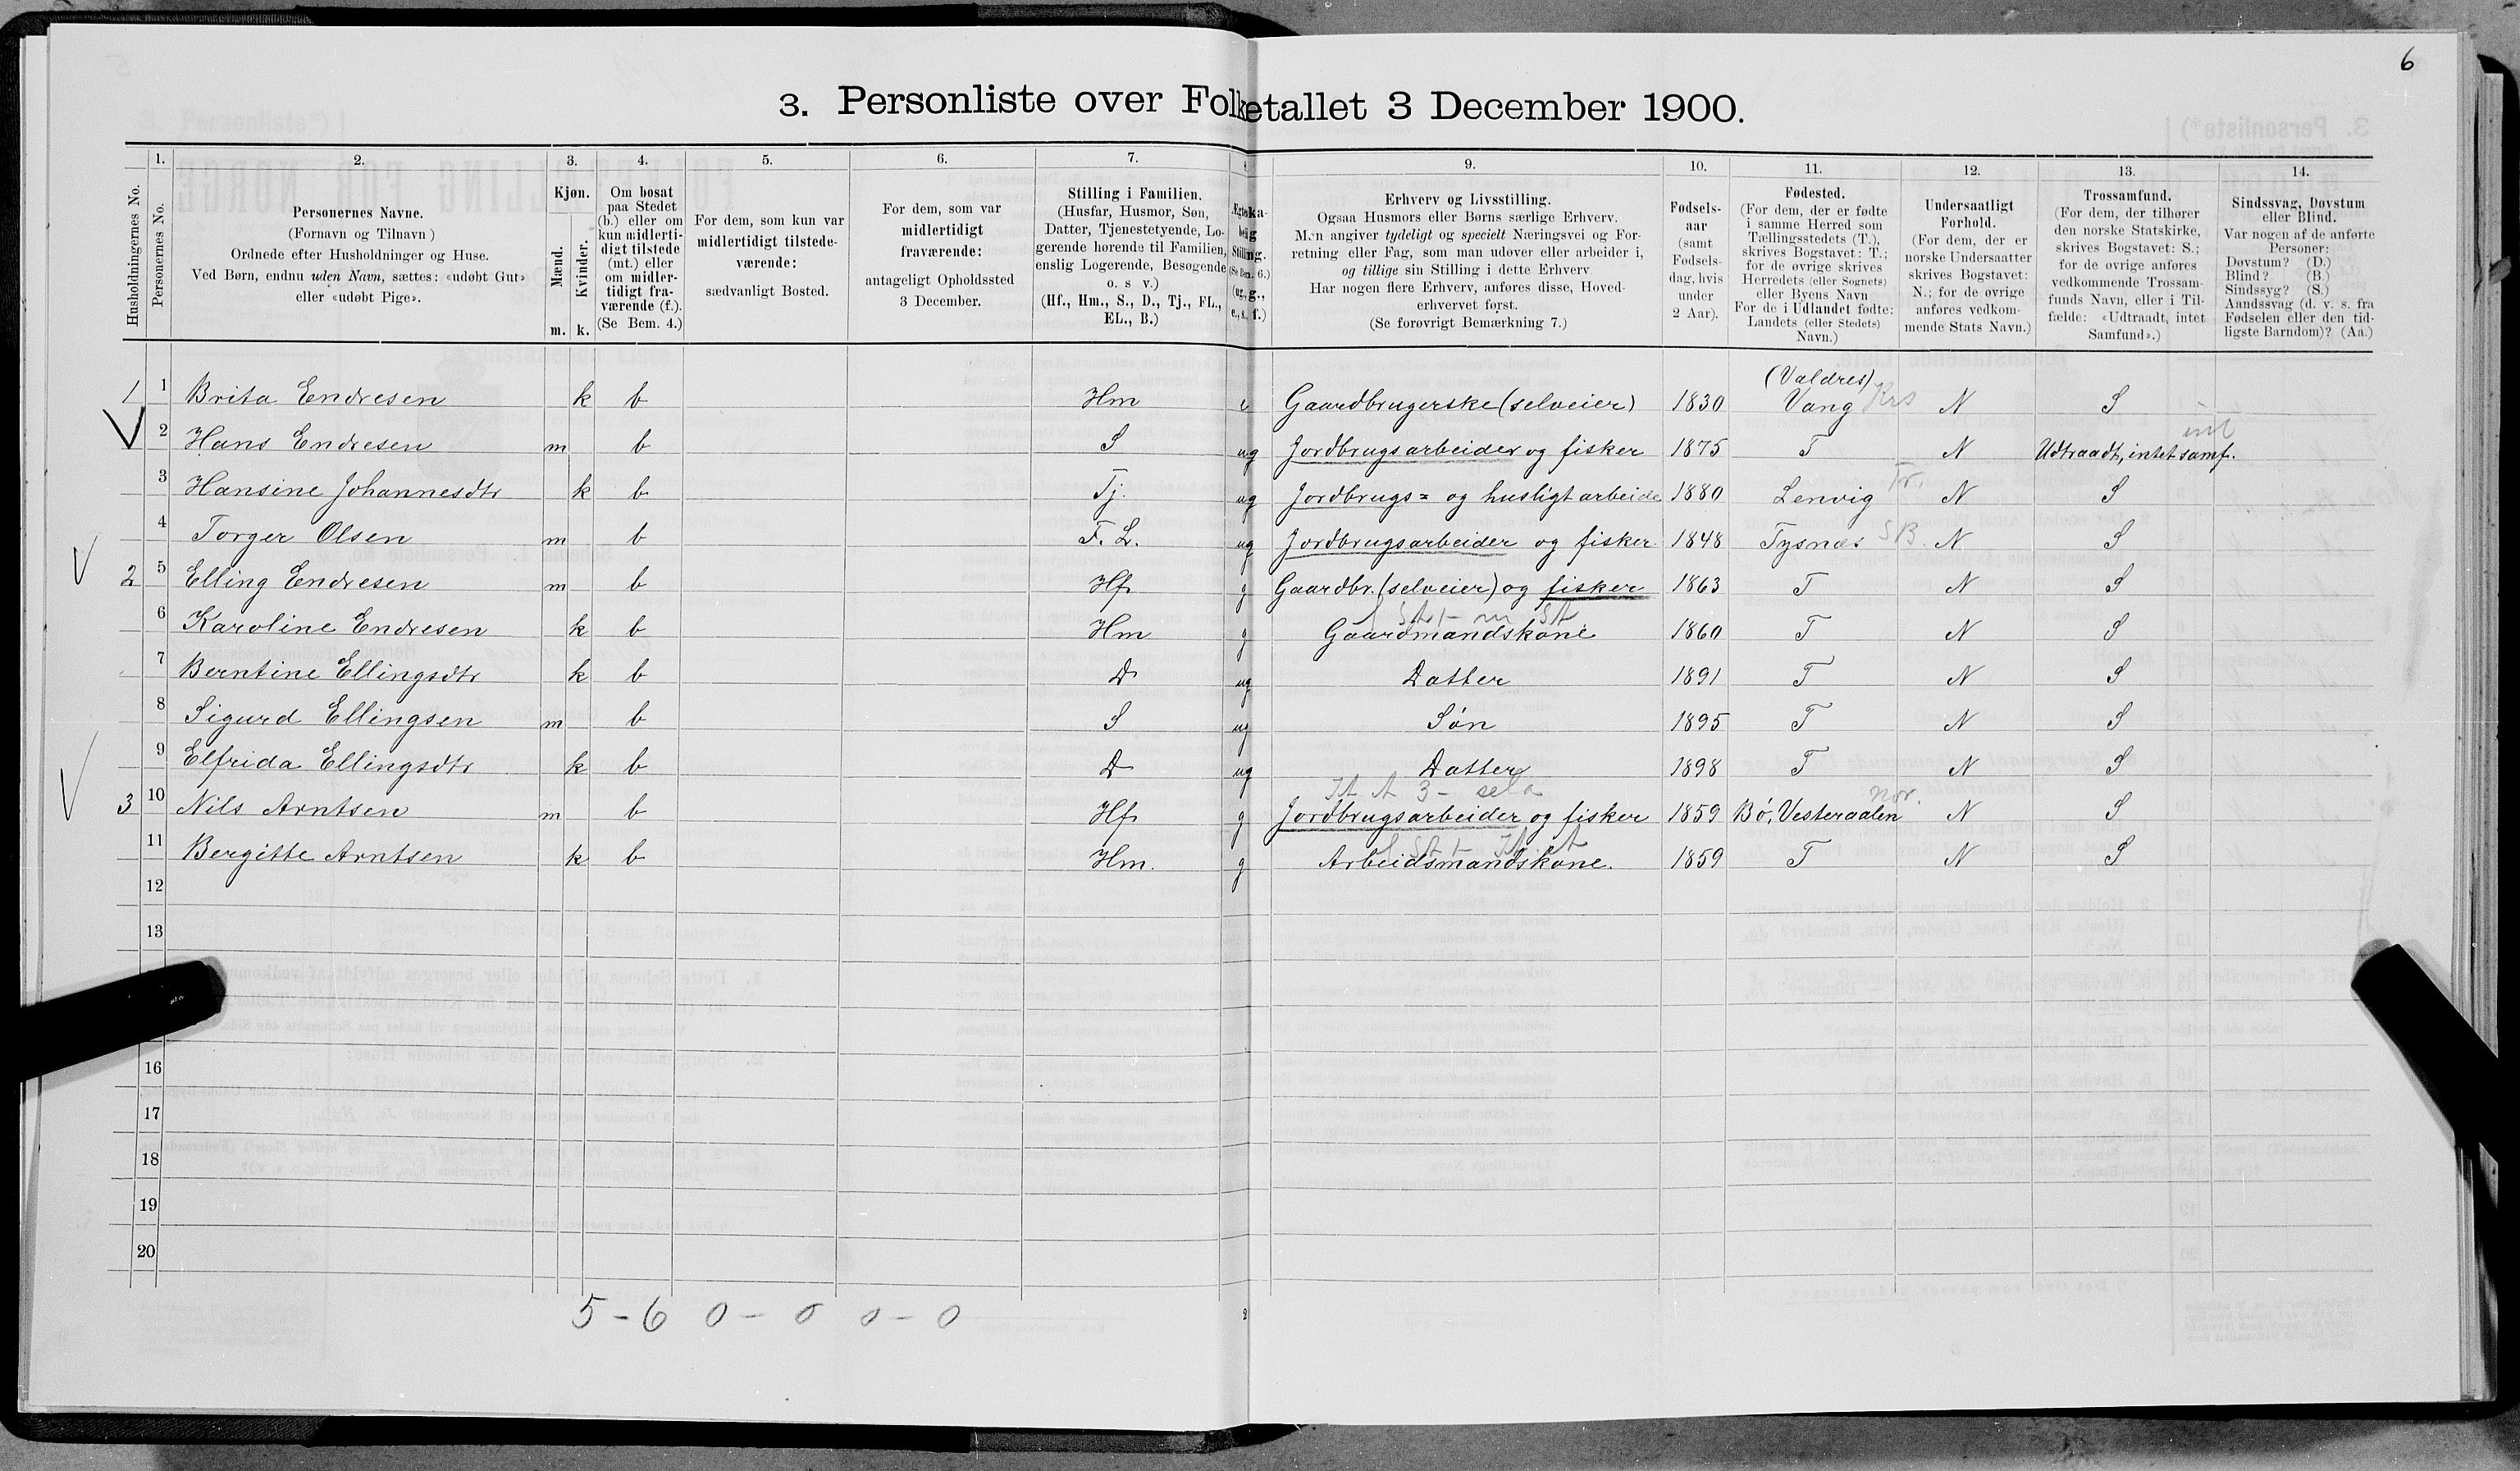 6
3. Personliste over Folketallet 3 December 1900.
1. 2. 3. 4. 5. 6. 7. 8 9. 10. 11. 12. 13. 14.
Husholdningernes No.
Personernes No.
Personernes Navne.
(Fornavn og Tilnavn)
Ordnede efter Husholdninger og Huse.
Ved Børn, endnu uden Navn, sættes: «udøbt Gut»
eller «udøbt Pige».
Kjøn.
Mænd.
Kvinder.
m. k.
Om bosat
paa Stedet
(b.) eller om
kun midlerti-
digt tilstede
(mt.) eller
om midler-
tidigt fra-
værende (f.).
(Se Bem. 4.)
For dem, som kun var
midlertidigt tilstede-
værende:
sædvanligt Bosted.
For dem, som var
midlertidigt
fraværende:
antageligt Opholdssted
3 December.
Stilling i Familien.
(Husfar, Husmor, Søn,
Datter, Tjenestetyende, Lo-
gerende hørende til Familien,
enslig Logerende, Besøgende
o. s v.)
(Hf., Hm., S., D., Tj., FL.,
EL., B.)
Ægteska-
belig
Stilling.
(Se Bem. 6.)
(ug., g.,
e., s., f.)
Erhverv og Livsstilling.
Ogsaa Husmors eller Børns særlige Erhverv.
Men angiver tydeligt og specielt Næringsvei og For-
retning eller Fag, som man udøver eller arbeider i,
og tillige sin Stilling i dette Erhverv
Har nogen flere Erhverv, anføres disse, Hoved-
erhvervet først.
(Se forøvrigt Bemærkning 7.)
Fødsels-
aar
(samt
Fødsels-
dag, hvis
under
2 Aar).
Fødested.
(For dem, der er fødte
i samme Herred som
Tællingsstedets (T.),
skrives Bogstavet: T.;
for de øvrige skrives
Herredets (eller Sognets)
eller Byens Navn
For de i Udlandet fødte:
Landets (eller Stedets)
Navn.)
Undersaatligt
Forhold.
(For dem, der er
norske Undersaatter
skrives Bogstavet:
N.; for de øvrige
anføres vedkom-
mende Stats Navn.)
Trossamfund.
(For dem, der tilhører
den norske Statskirke,
skrives Bogstavet: S.;
for de øvrige anføres
vedkommende Trossam-
funds Navn, eller i Til-
fælde: «Udtraadt, intet
Samfund».)
Sindssvag, Døvstum
eller Blind.
Var nogen af de anførte
Personer:
Døvstum? (D.)
Blind? (B.)
Sindssyg? (S.)
Aandssvag (d. v. s. fra
Fødselen eller den tid-
ligste Barndom)? (Aa.)
1 1 Brita Endresen k b Hm e Gaardbrugerske (selveier) 1830 (Valdres) Vang Krs N S
2 Hans Endresen m b S ug Jordbrugsarbeider og fisker 1875 T N Udtraadt, intet samf. int
3 Hansine Johannesdtr k b Tj. ug Jordbrugs= og husligt arbeide 1880 Lenvig Tr. N S
4 Torger Olsen m b F. L. ug Jordbrugsarbeider og fisker 1848 Tysnæs SB. N S
2 5 Elling Endresen m b Hf g Gaardbr. (selveier) og fisker 1863 T N S
6 Karoline Endresen k b Hm g Gaardmandskone 1860 T N S
7 Berntine Ellingsdtr k b D ug Datter 1891 T N S
8 Sigurd Ellingsen m b S ug Søn 1895 T N S
9 Elfrida Ellingsdtr k b D ug Datter 1898 T N S
3 10 Nils Arntsen m b Hf g Jordbrugsarbeider og fisker 1859 Bø, Vesteraalen Nor. N S
11 Bergitte Arntsen k b Hm. g Arbeidsmandskone. 1859 T N S
12
13
16
17
18
19
20
5 - 6 0 - 0 0 - 0
2